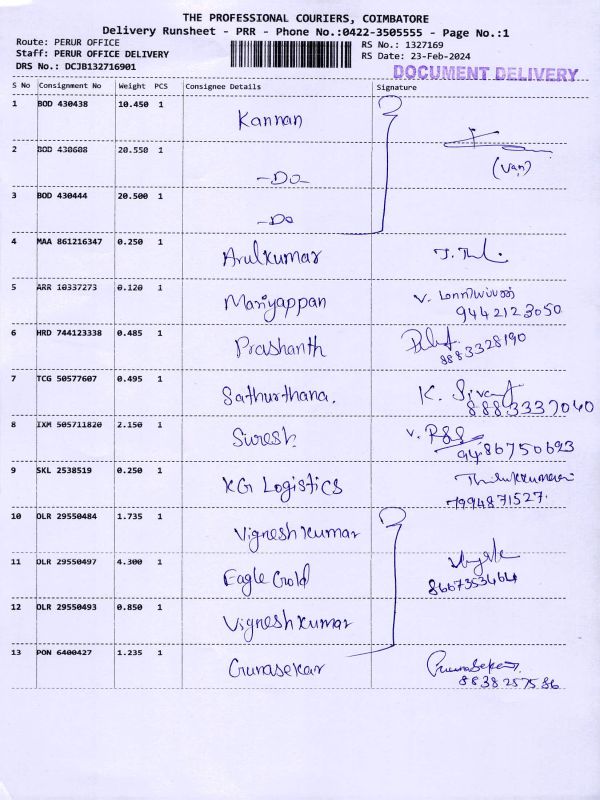 THE PROFESSIONAL COURIERS, COIMBATORE
Delivery Runsheet - PRR - Phone No.:0422-3505555 - Page No.:1
Route: PERUR OFFICE RS No.: 1327169
Staff: PERUR OFFICE DELIVERY RS Date: 23-Feb-2024
DRS No.: DCJB132716901
DOCUMENT DELIVERY
S No Consignment No Weight PCS Consignee Details Signature
1 BOD 430438 10.450 1 Kannan
2 BOD 430608 20.550 1 -Do- (Van)
3 BOD 430444 20.500 1 -Do
4 MAA 861216347 0.250 1 Arulkumar
5 ARR 10337273 0.120 1 Mariyappan V. மாரியப்பன்
9442123050
6 HRD 744123338 0.485 1 Prashanth
8883328190
7 TCG 50577607 0.495 1 Sathurthana. K.
8883337040
8 IXM 505711820 2.150 1 Suresh V.
9486750693
9 SKL 2538519 0.250 1 KG Logistics
7994871527
10 OLR 29550484 1.735 1 Vignesh kumar
11 OLR 29550497 4.300 1 Eagle Gold
8667353464
12 OLR 29550493 0.850 1 Vignesh kumar
13 PON 6400427 1.235 1 Gunasekar Gunasekar
8838257586